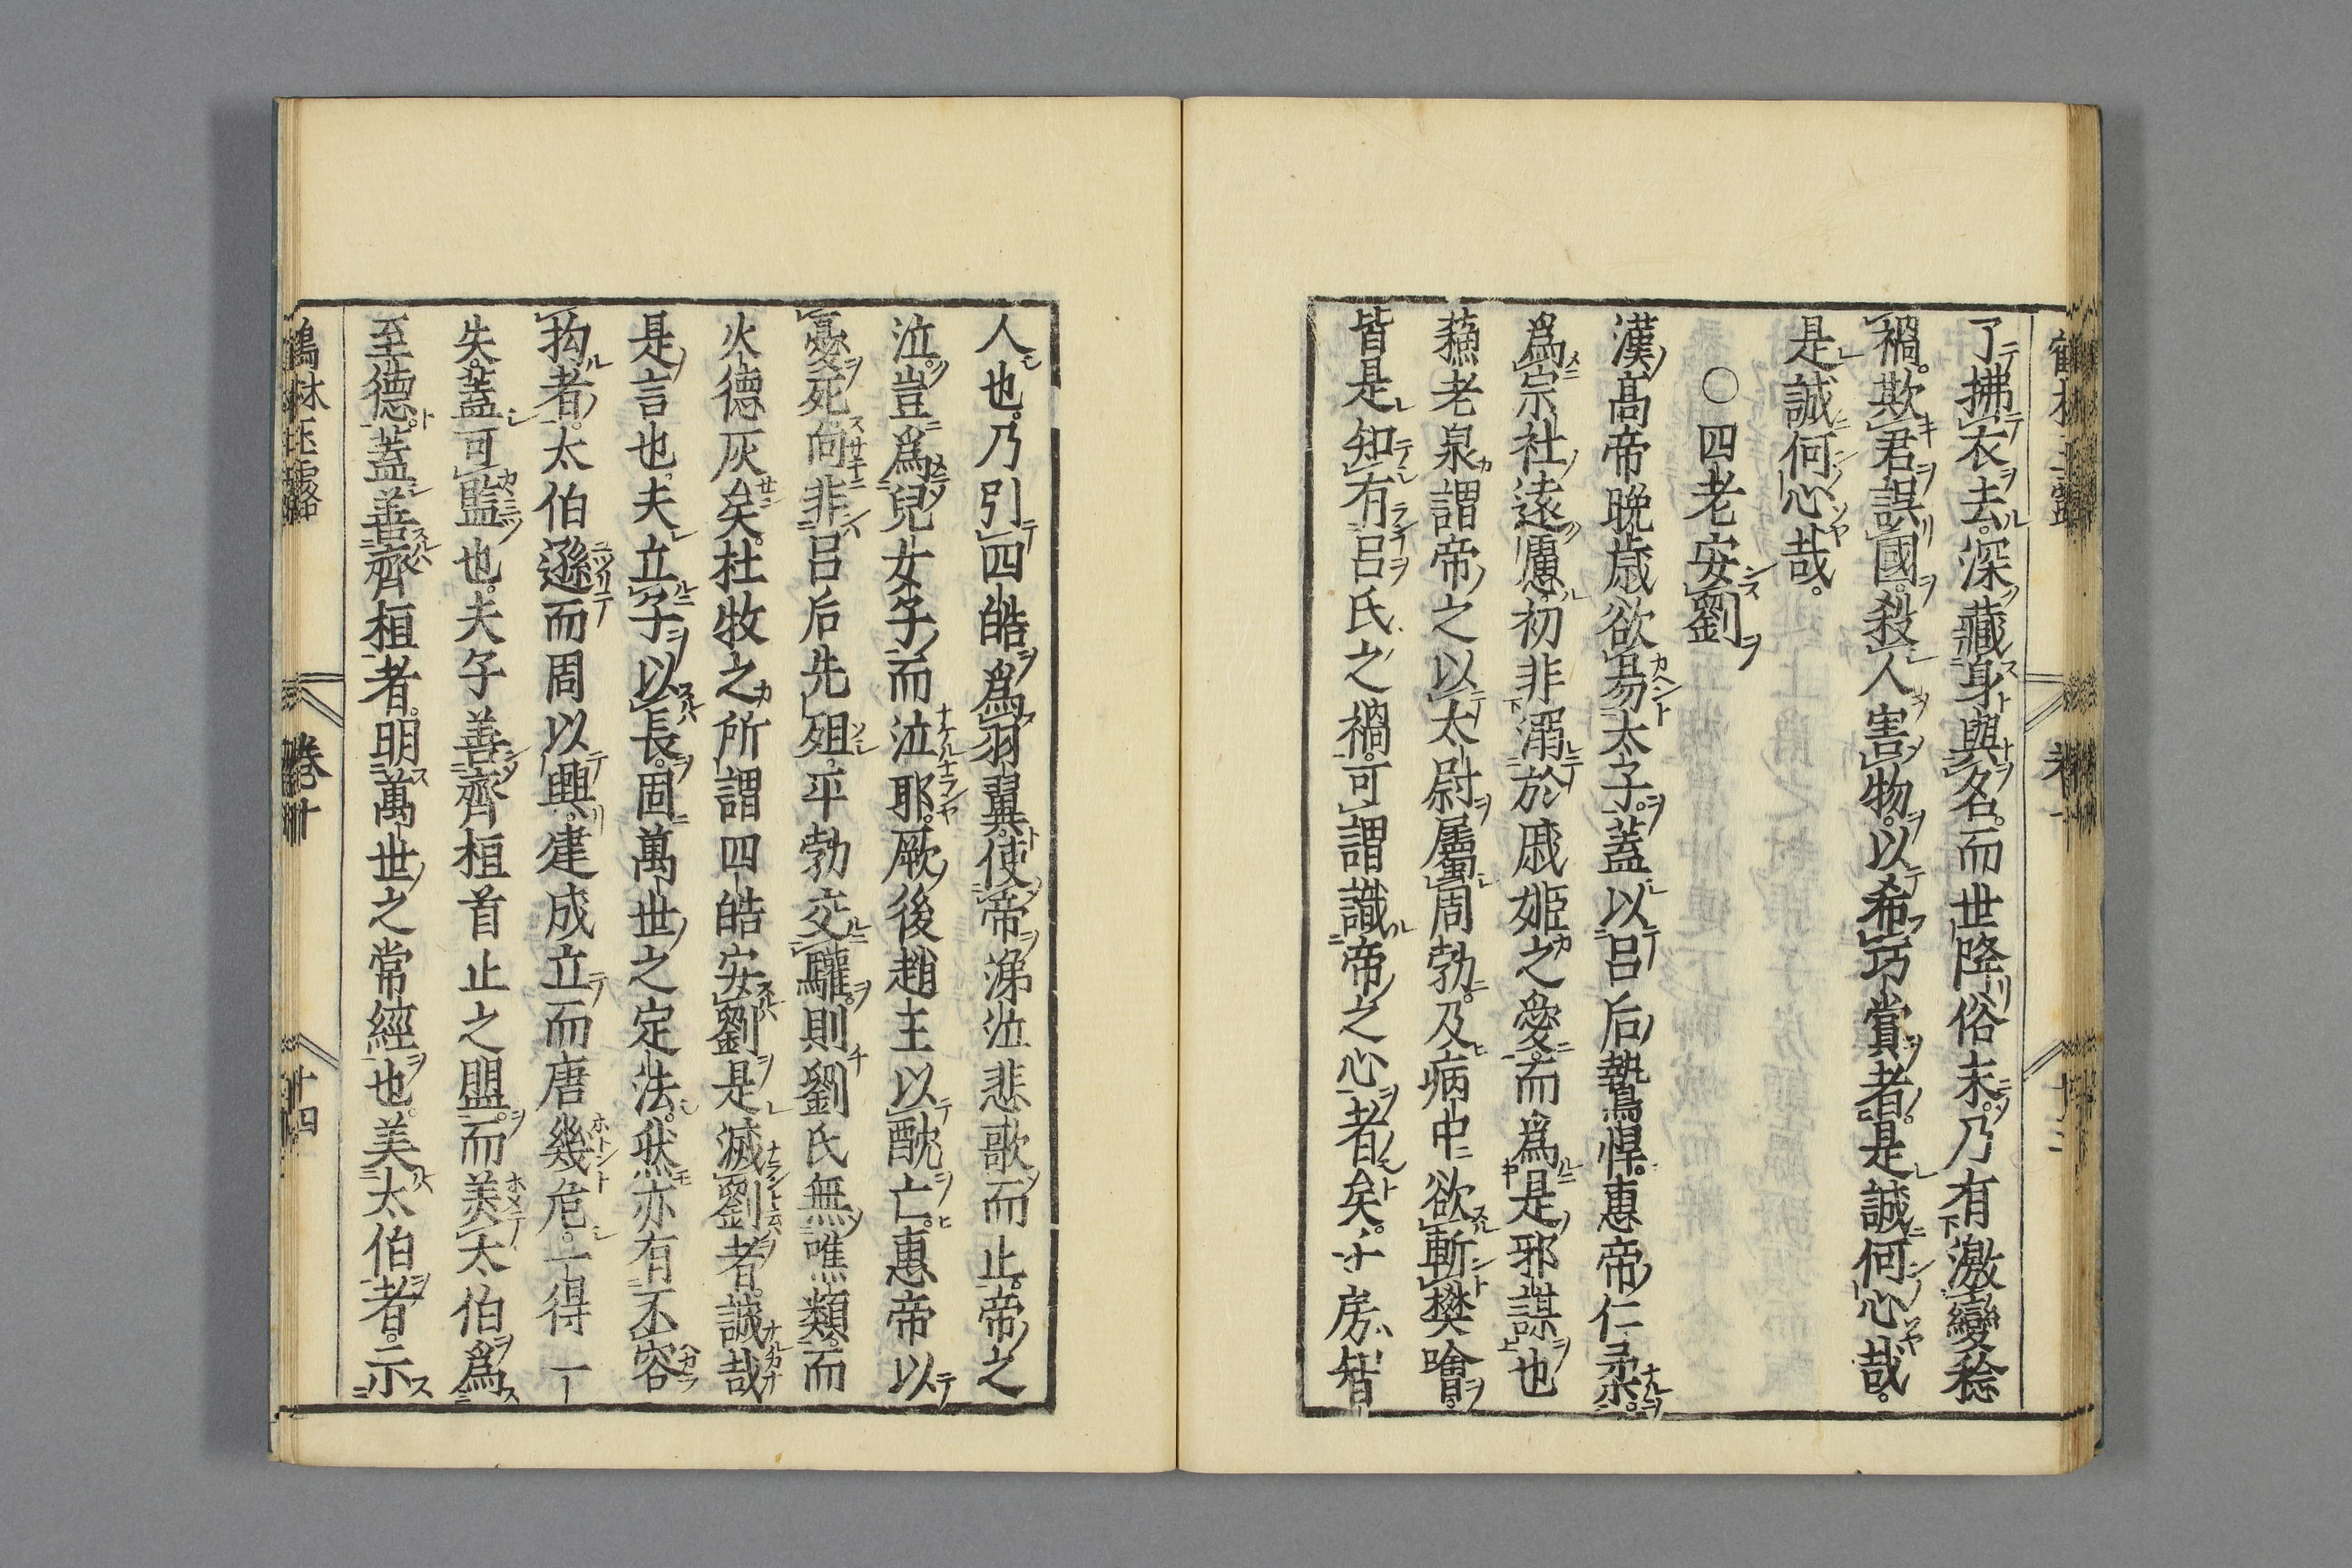 了拂衣去。深藏身與名。而世降俗末。乃有激變稔
禍。欺君誤國。殺人害物。以希巧賞者。是誠何心哉。
是誠何心哉。
○四老安劉
漢高帝晚歲欲易太子。蓋以呂后鷙悍。惠帝仁柔。
爲宗社遠慮。初非溺於戚姬之愛。而爲是邪謀也
蘓老泉謂帝之以太尉屬周勃。及病中欲斬樊噲。
皆是知有呂氏之禍。可謂識帝之心者矣。子房智
人也。乃引四皓爲羽翼。使帝涕泣悲歌而止。帝之
泣。豈爲兒女子而泣耶。厥後趙王以酖亡。惠帝以
憂死。向非呂后先殂。平勃交驩。則劉氏無噍類。而
火德灰矣。杜牧之所謂四皓安劉是滅劉者。誠哉
是言也。夫立子以長。固萬世之定法。然亦有不容
拘者。太伯遜而周以興。建成立而唐幾危。一得一
失。蓋可監也。夫子善齊桓首止之盟。而美太伯爲
至德。蓋善齊桓者。明萬世之常經也。美太伯者。示
鶴林玉露
卷十
十四